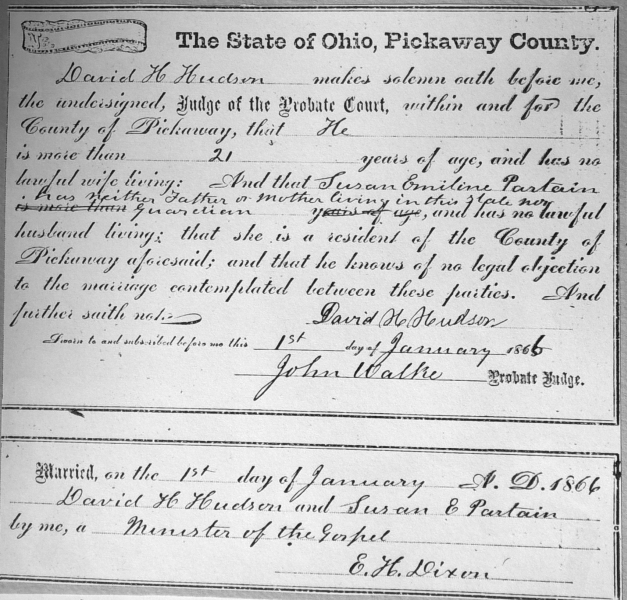 The State of Ohio, Pickaway County.
David H Hudson makes solemn oath before me,
the undersigned, Judge of the Probate Court, within and for the
County of Pickaway, that He
is more than 21 years of age, and has no
lawful wife living; And that Susan Emiline Partain
has neither Father or Mother living in this State nor
is more than Guardian years of age, and has no lawful
husband living; that she is a resident of the County of
Pickaway aforesaid; and that he knows of no legal objection
to the marriage contemplated between these parties. And
further saith not.
David H Hudson
Sworn to and subscribed before me this 1st day of January 1866
John Walke Probate Judge.
Married, on the 1st day of January A. D. 1866
David H Hudson and Susan E Partain
by me, a Minister of the Gospel
E. H. Dixon